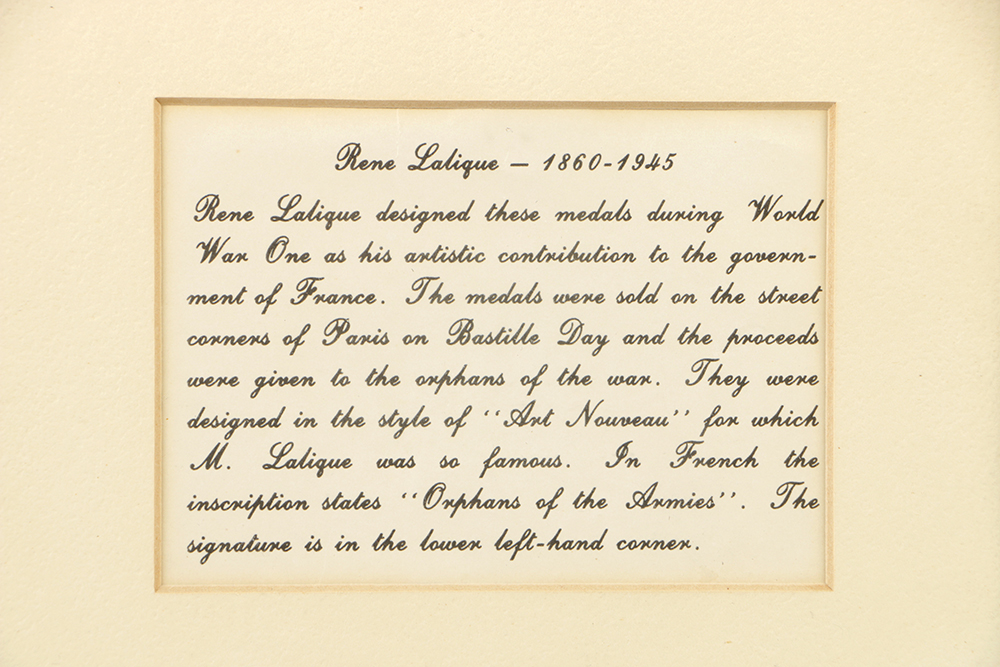 Rene Lalique — 1860-1945
Rene Lalique designed these medals during World
War One as his artistic contribution to the govern-
ment of France. The medals were sold on the street
corners of Paris on Bastille Day and the proceeds
were given to the orphans of the war. They were
designed in the style of ‘‘Art Nouveau’’ for which
M. Lalique was so famous. In French the
inscription states ‘‘Orphans of the Armies’’. The
signature is in the lower left-hand corner.